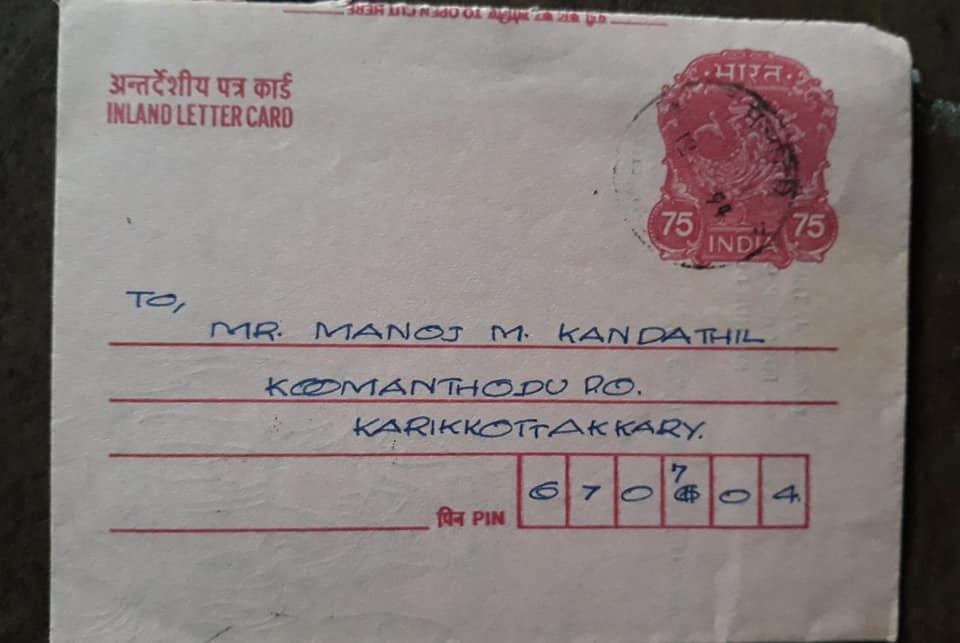 यहाँ काट कर खोलिए TO OPEN CUT HERE
अन्तर्देशीय पत्र कार्ड
INLAND LETTER CARD
भारत
75 75
INDIA
94
TO,
MR. MANOJ M. KANDATHIL
KOOMANTHODU P.O.
KARIKKOTTAKKARY.
पिन PIN 6 7 0 7 0 4